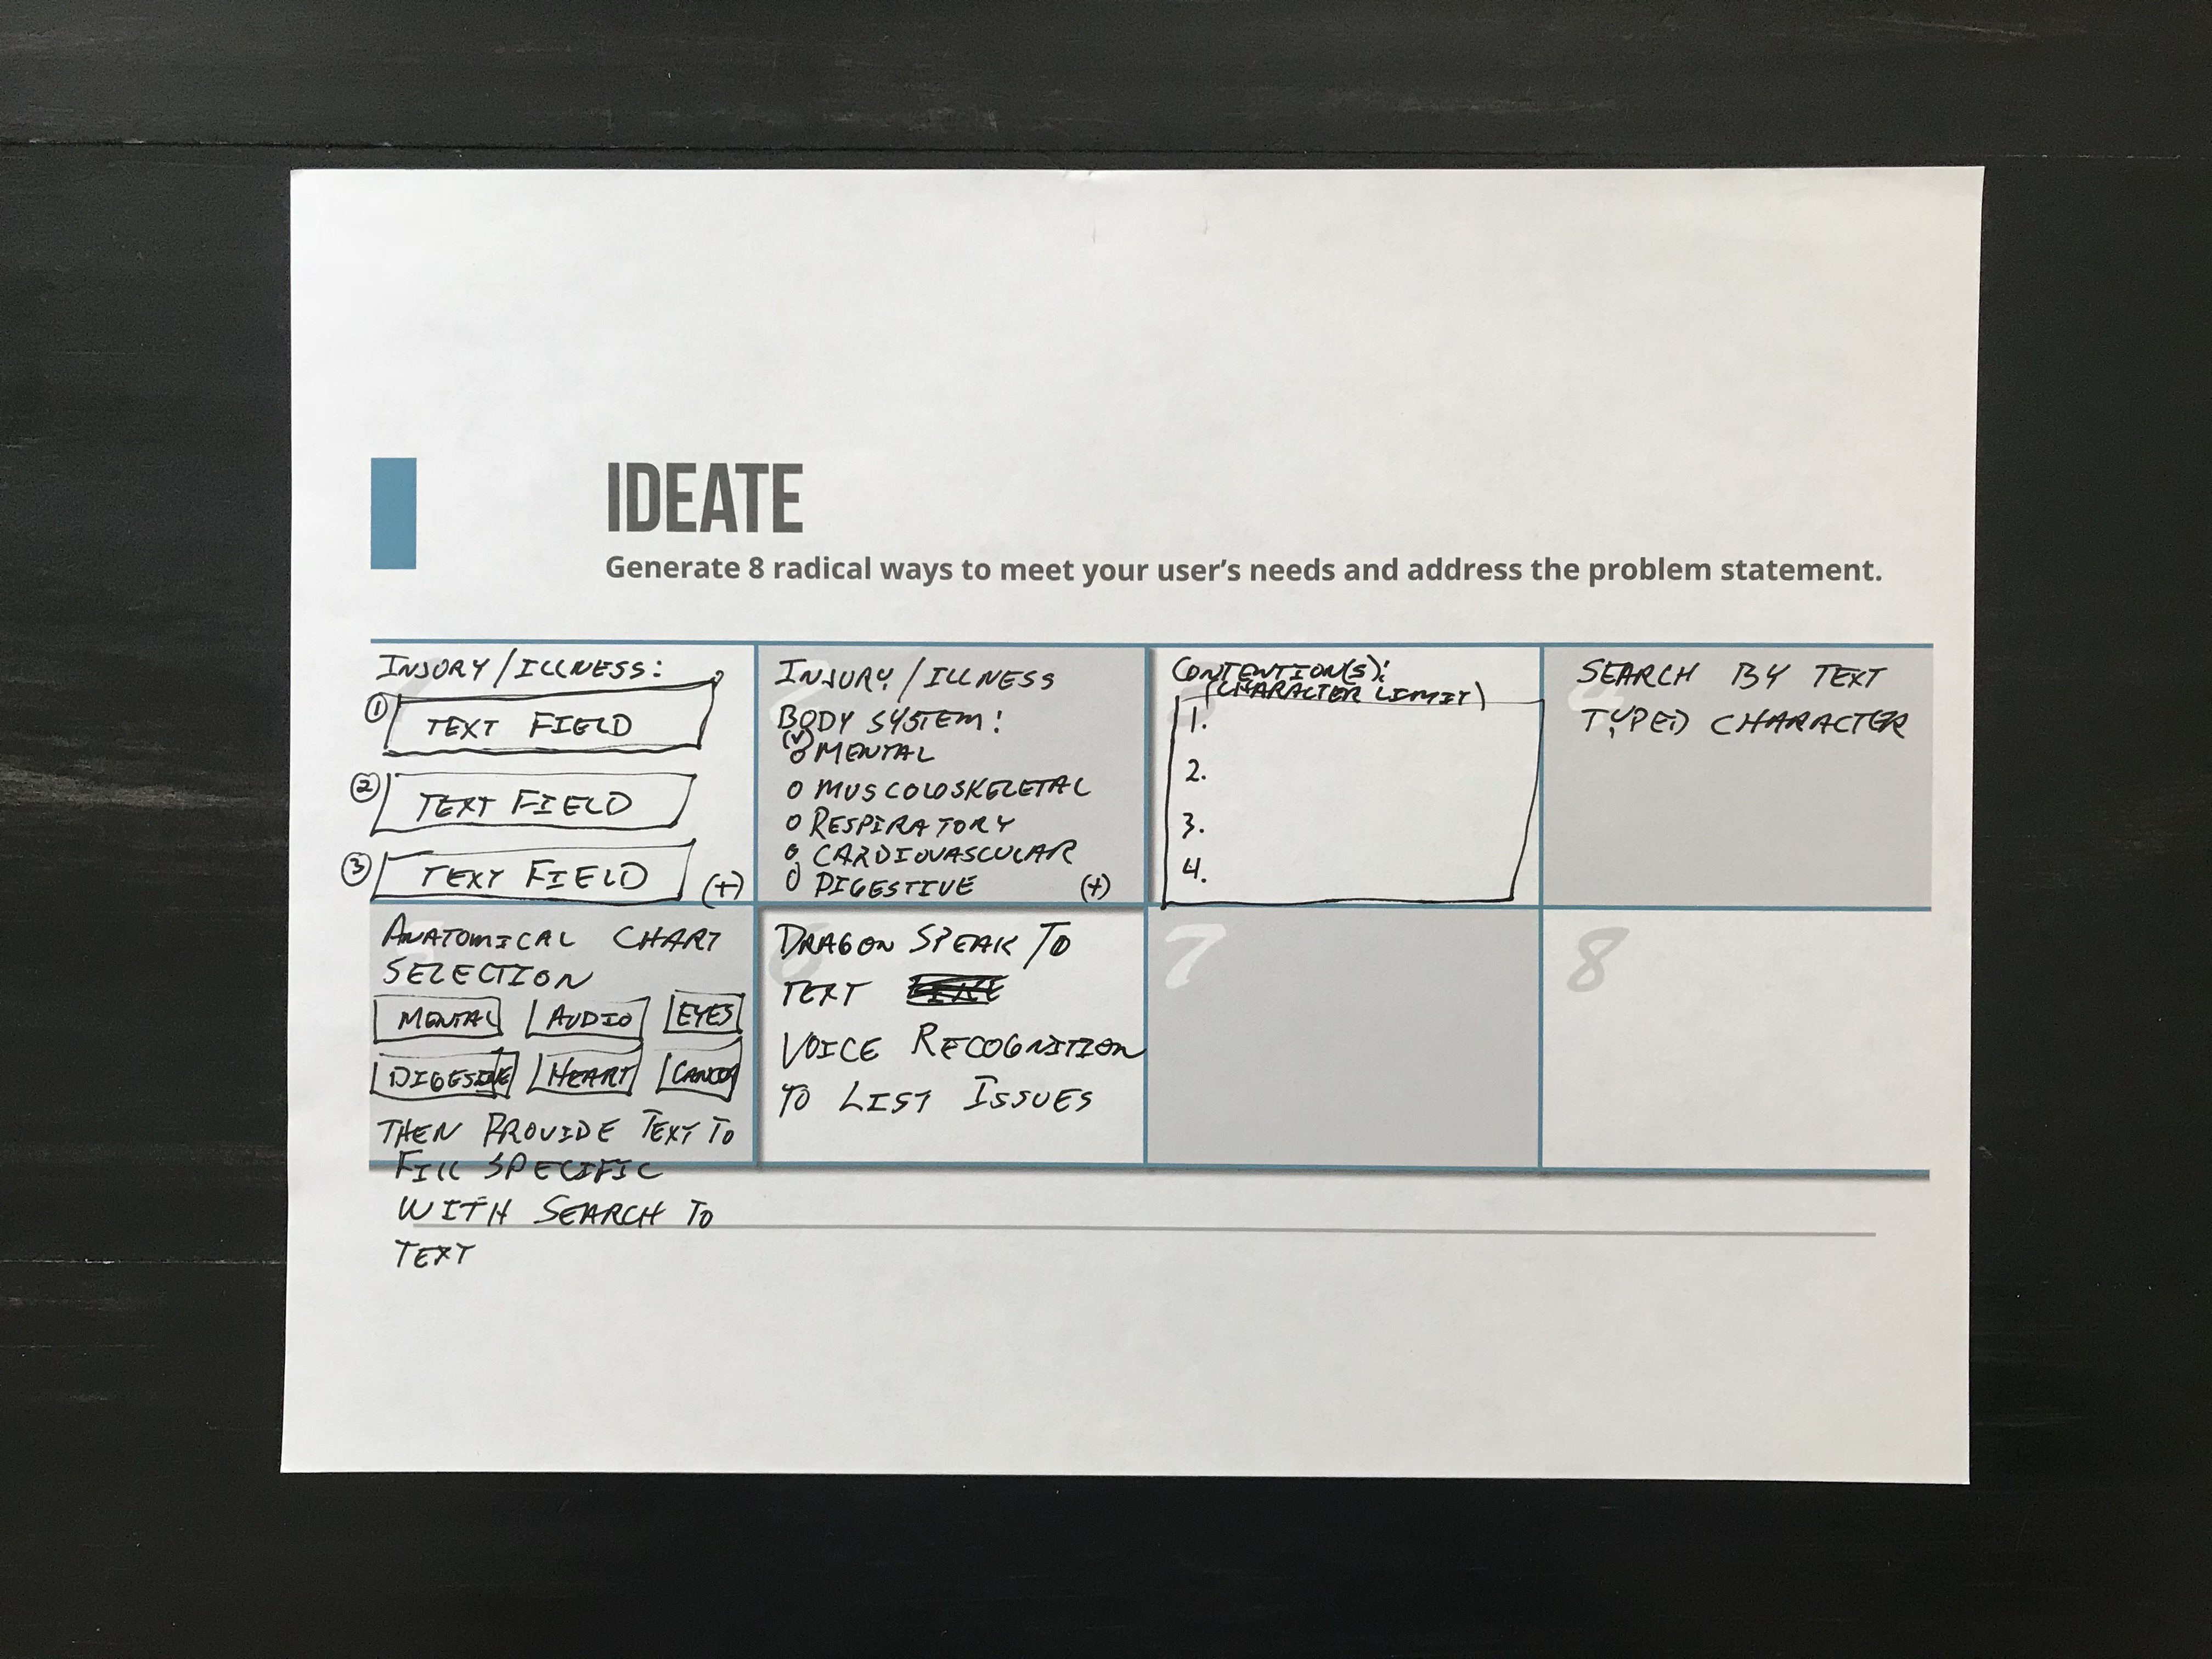 IDEATE
Generate 8 radical ways to meet your user's needs and address the problem statement.
INJURY/ILLNESS:
1 TEXT FIELD
2 TEXT FIELD
3 TEXT FIELD (+)
INJURY/ILLNESS
BODY SYSTEM:
(v)
o MENTAL
o MUSCOLOSKELETAL
o RESPIRATORY
o CARDIOVASCULAR
o DIGESTIVE (+)
CONTENTION(S):
(CHARACTER LIMIT)
1.
2.
3.
4.
SEARCH BY TEXT
TYPED CHARACTER
ANATOMICAL CHART
SELECTION
MENTAL AUDIO EYES
DIGESTIVE HEART CANCER
THEN PROVIDE TEXT TO
FILL SPECIFIC
WITH SEARCH TO
TEXT
6
DRAGON SPEAK TO
TEXT
VOICE RECOGNITION
TO LIST ISSUES
7
8